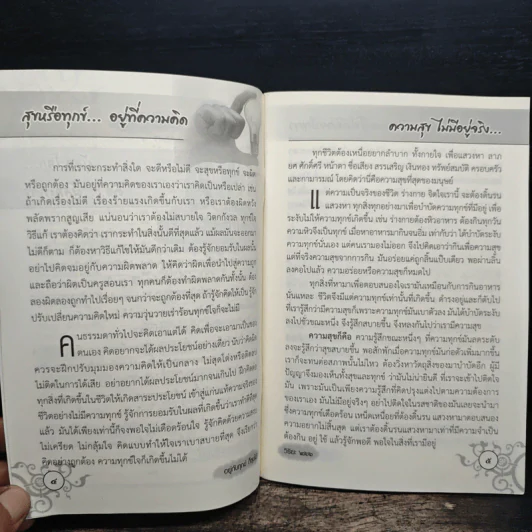 สุขหรือทุกข์... อยู่ที่ความคิด
การที่เราจะกระทำสิ่งใด จะดีหรือไม่ดี จะสุขหรือทุกข์ จะผิด
หรือถูกต้อง มันอยู่ที่ความคิดของเราเองว่าเราคิดเป็นหรือเปล่า เช่น
ถ้าเกิดเรื่องไม่ดี เรื่องร้ายแรงเกิดขึ้นกับเรา หรือเราต้องผิดหวัง
พลัดพรากสูญเสีย แน่นอนว่าเราต้องไม่สบายใจ วิตกกังวล ทุกข์ใจ
วิธีแก้ เราต้องคิดว่า เรากระทำสิ่งนั้นดีที่สุดแล้ว แม้ผลมันจะออกมา
ไม่ดีก็ตาม ก็ต้องหาวิธีแก้ไขให้มันดีกว่าเดิม ต้องรู้จักยอมรับในผลนั้น
อย่าไปคิดจมอยู่กับความผิดพลาด ให้คิดว่าผิดเพื่อนำไปสู่ความถูก
และถือว่าผิดเป็นครูสอนเรา ทุกคนก็ต้องทำผิดพลาดกันทั้งนั้น ต้อง
ลองผิดลองถูกทำไปเรื่อยๆ จนกว่าจะถูกต้องที่สุด ถ้ารู้จักคิดให้เป็น รู้จัก
ปรับเปลี่ยนความคิดใหม่ ความวุ่นวายเร่าร้อนทุกข์ใจก็จะไม่มี
คนธรรมดาทั่วไปจะคิดเอาแต่ได้ คิดเพื่อจะเอามาเป็นของ
ตนเอง คิดอยากจะได้ผลประโยชน์อย่างเดียว นับว่าคิดผิด
ควรจะฝึกปรับมุมมองความคิดให้เป็นกลาง ไม่สุดโต่งหรือติดลบ
ไม่ติดในการได้เสีย อย่าอยากได้ผลประโยชน์มากจนเกินไป ฝึกคิดว่า
ทุกสิ่งที่เกิดขึ้นในชีวิตให้เกิดสาระประโยชน์ เข้าสู่แก่นแท้ความจริงของ
ชีวิตอย่างไม่มีความทุกข์ รู้จักการยอมรับในผลที่เกิดขึ้นว่าเราทำดีที่สุด
แล้ว มันได้เพียงเท่านี้ก็จงพอใจไม่เดือดร้อนใจ รู้จักคิดด้วยความสงบ
ไม่เครียด ไม่กลุ้มใจ คิดแบบทำให้ใจเราเบาสบายที่สุด จึงเรียกว่า
คิดอย่างถูกต้อง ความทุกข์ใจก็เกิดขึ้นไม่ได้
๔
ความสุข ไม่มีอยู่จริง...
ทุกชีวิตต้องเหนื่อยยากลำบาก ทั้งกายใจ เพื่อแสวงหา ลาภ
ยศ ศักดิ์ศรี หน้าตา ชื่อเสียง สรรเสริญ เงินทอง ทรัพย์สมบัติ ครอบครัว
และกามารมณ์ โดยคิดว่านี่คือความสุขที่สุดของมนุษย์
แต่ความเป็นจริงของชีวิต ร่างกาย จิตใจเรานี้ จะต้องดิ้นรน
แสวงหา ทุกสิ่งทุกอย่างมาเพื่อบำบัดความทุกข์ที่มีอยู่ เพื่อ
ระงับไม่ให้ความทุกข์เกิดขึ้น เช่น ร่างกายต้องหิวอาหาร ต้องกินทุกวัน
ความหิวจึงเป็นทุกข์ เมื่อหาอาหารมากินจนอิ่ม เท่ากับว่า ได้บำบัดระงับ
ความทุกข์นั้นเอง แต่คนเรามองไม่ออก จึงไปคิดเอาว่ากินเพื่อความสุข
แต่ที่จริงความสุขจากการกิน มันอร่อยแค่ถูกลิ้นแป๊บเดียว พอผ่านลิ้น
ลงคอไปแล้ว ความอร่อยหรือความสุขก็หมดไป
ทุกสิ่งที่หามาเพื่อตอบสนองใจเรามันเหมือนกับการกินอาหาร
นั่นแหละ ชีวิตจึงมีแต่ความทุกข์เท่านั้นที่เกิดขึ้น ดำรงอยู่และก็ดับไป
ที่เรารู้สึกว่ามีความสุขก็เพราะความทุกข์มันเบาตัวลง มันได้บำบัดระงับ
ลงไปชั่วขณะหนึ่ง จึงรู้สึกสบายขึ้น จึงหลงกันไปว่าเรามีความสุข
ความสุขก็คือ ความรู้สึกขณะหนึ่งๆ ที่ความทุกข์มันลดระดับ
ลงจะรู้สึกว่าสุขสบายขึ้น พอสักพักเมื่อความทุกข์มันก่อตัวเพิ่มมากขึ้น
เราก็จะทนต่อสภาพนั้นไม่ไหว ต้องวิ่งหาวัตถุสิ่งของมาบำบัดอีก ผู้มี
ปัญญาจึงมองเห็นทั้งสุขและทุกข์ ว่ามันไม่น่ายินดี ที่เราจะเข้าไปติดใจ
มัน เพราะมันเป็นเพียงความรู้สึกที่คิดปรุงแต่งไปตามความต้องการ
ของเราเอง มันไม่มีอยู่จริงๆ อย่าไปติดใจในรสชาติของมันเลยจะนำมา
ซึ่งความทุกข์เดือดร้อน เหน็ดเหนื่อยที่ต้องดิ้นรน แสวงหามาตอบสนอง
ความอยากไม่สิ้นสุด แต่เราต้องดิ้นรนแสวงหามาเท่าที่มีความจำเป็น
ต้องกิน อยู่ ใช้ แล้วรู้จักพอดี พอใจในสิ่งที่เรามีอยู่
วิริยะ
๕